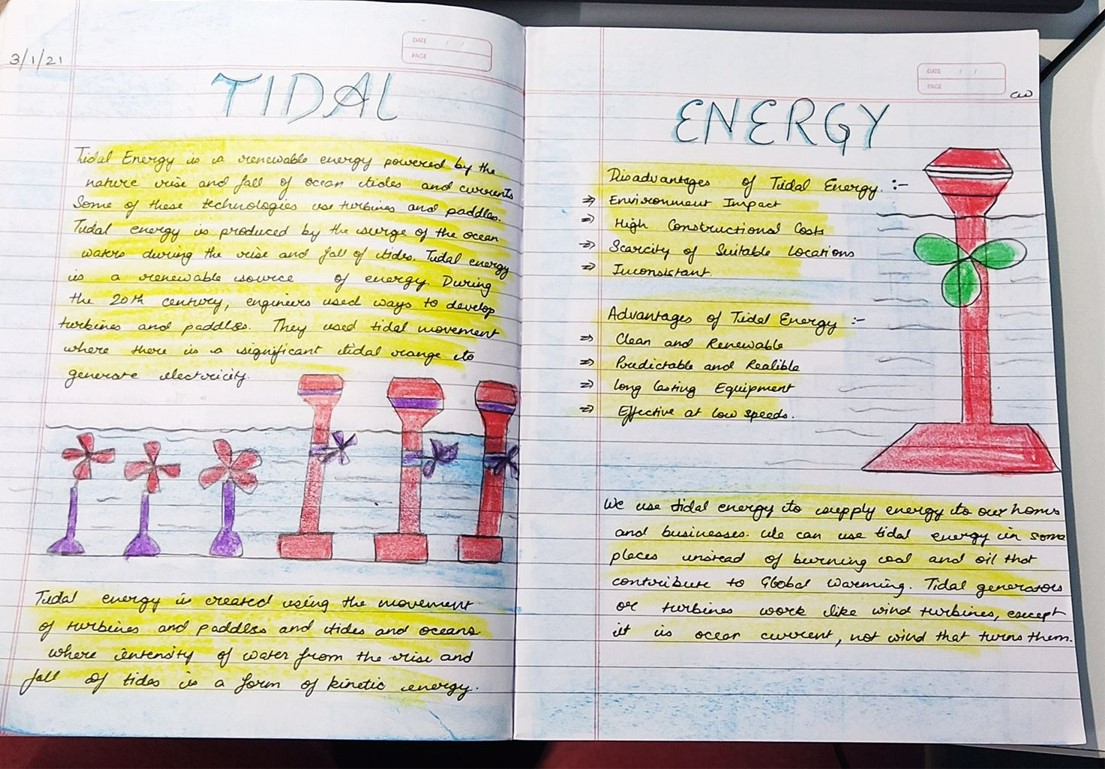 3/1/21
DATE / /
PAGE
TIDAL
Tidal Energy is a renewable energy powered by the
nature rise and fall of ocean tides and currents
Some of these technologies use turbines and paddles.
Tidal energy is produced by the surge of the ocean
waters during the rise and fall of tides. Tidal energy
is a renewable source of energy. During
the 20th century, engineers used ways to develop
turbines and paddles. They used tidal movement
where there is a significant tidal range to
generate electricity.
Tidal energy is created using the movement
of turbines and paddles and tides and oceans
where intencity of water from the rise and
fall of tides is a form of kinetic energy.
DATE / /
PAGE
CW
ENERGY
Disadvantages of Tidal Energy :-
⇒ Environment Impact
⇒ High Constructional Costs
⇒ Scarcity of Suitable Locations
⇒ Inconsistant
Advantages of Tidal Energy :-
⇒ Clean and Renewable
⇒ Predictable and Realible
⇒ Long lasting Equipment
⇒ Effective at low speeds.
We use tidal energy to supply energy to our homes
and businesses. We can use tidal energy in some
places instead of burning coal and oil that
contribute to Global Warming. Tidal generators
or turbines work like wind turbines, except
it is ocean current, not wind that turns them.